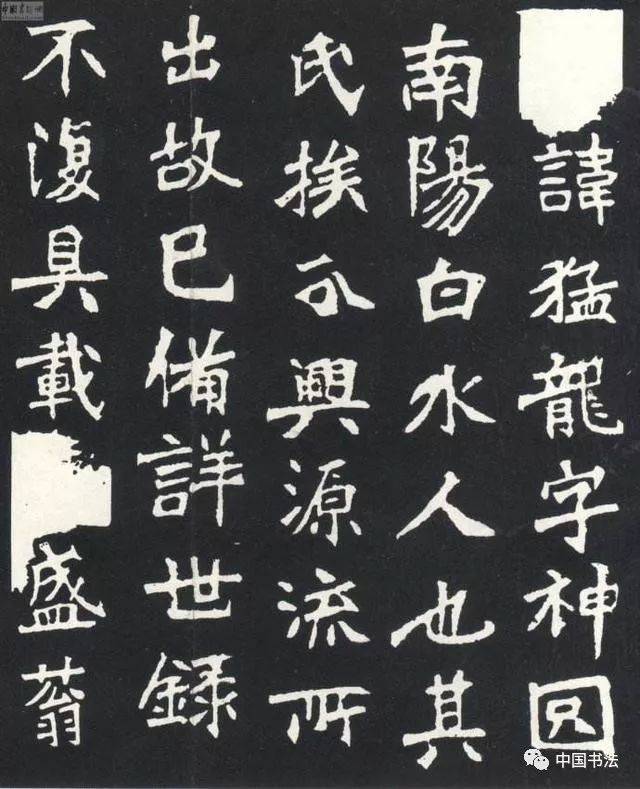 諱猛龍字神囧
南陽白水人也其
氏族分興源流所
出故已備詳世録
不復具載盛蓊
中国书法